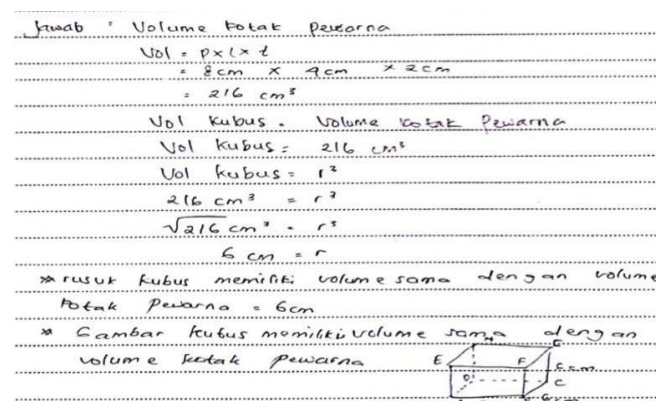 Jawab : Volume kotak pewarna
Vol = p x l x t
= 8 cm x 9 cm x 2 cm
= 216 cm³
Vol kubus = Volume kotak Pewarna
Vol kubus = 216 cm³
Vol kubus = r³
216 cm³ = r³
√216 cm³ = r³
6 cm = r
* rusuk kubus memiliki volume sama dengan volume
kotak Pewarna = 6cm
* Gambar kubus memiliki volume sama dengan
volume kotak pewarna
H
E F 6 cm
D C
6 cm